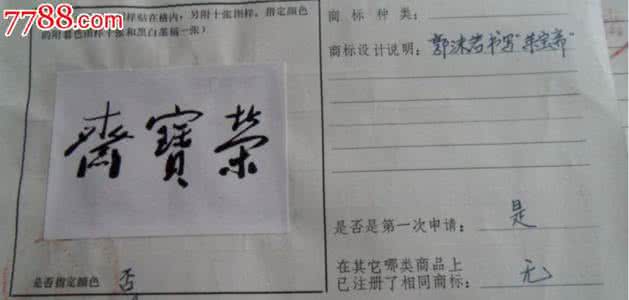 7788.com
样贴在格内，另附十张图样，指定颜色
的附着色图样十张和黑白墨稿一张）
齋寳榮
是否指定颜色 否
商标种类：
商标设计说明：郭沫若书写"荣宝斋"
是否是第一次申请：是
在其它哪类商品上
已注册了相同商标：无